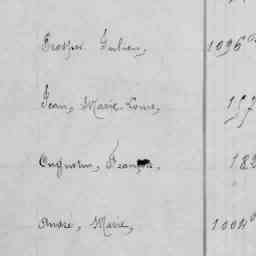 Prosper Julien, 1096
Jean, Marie Louis, 157
Augustin, François, 182
André, Marie, 1004